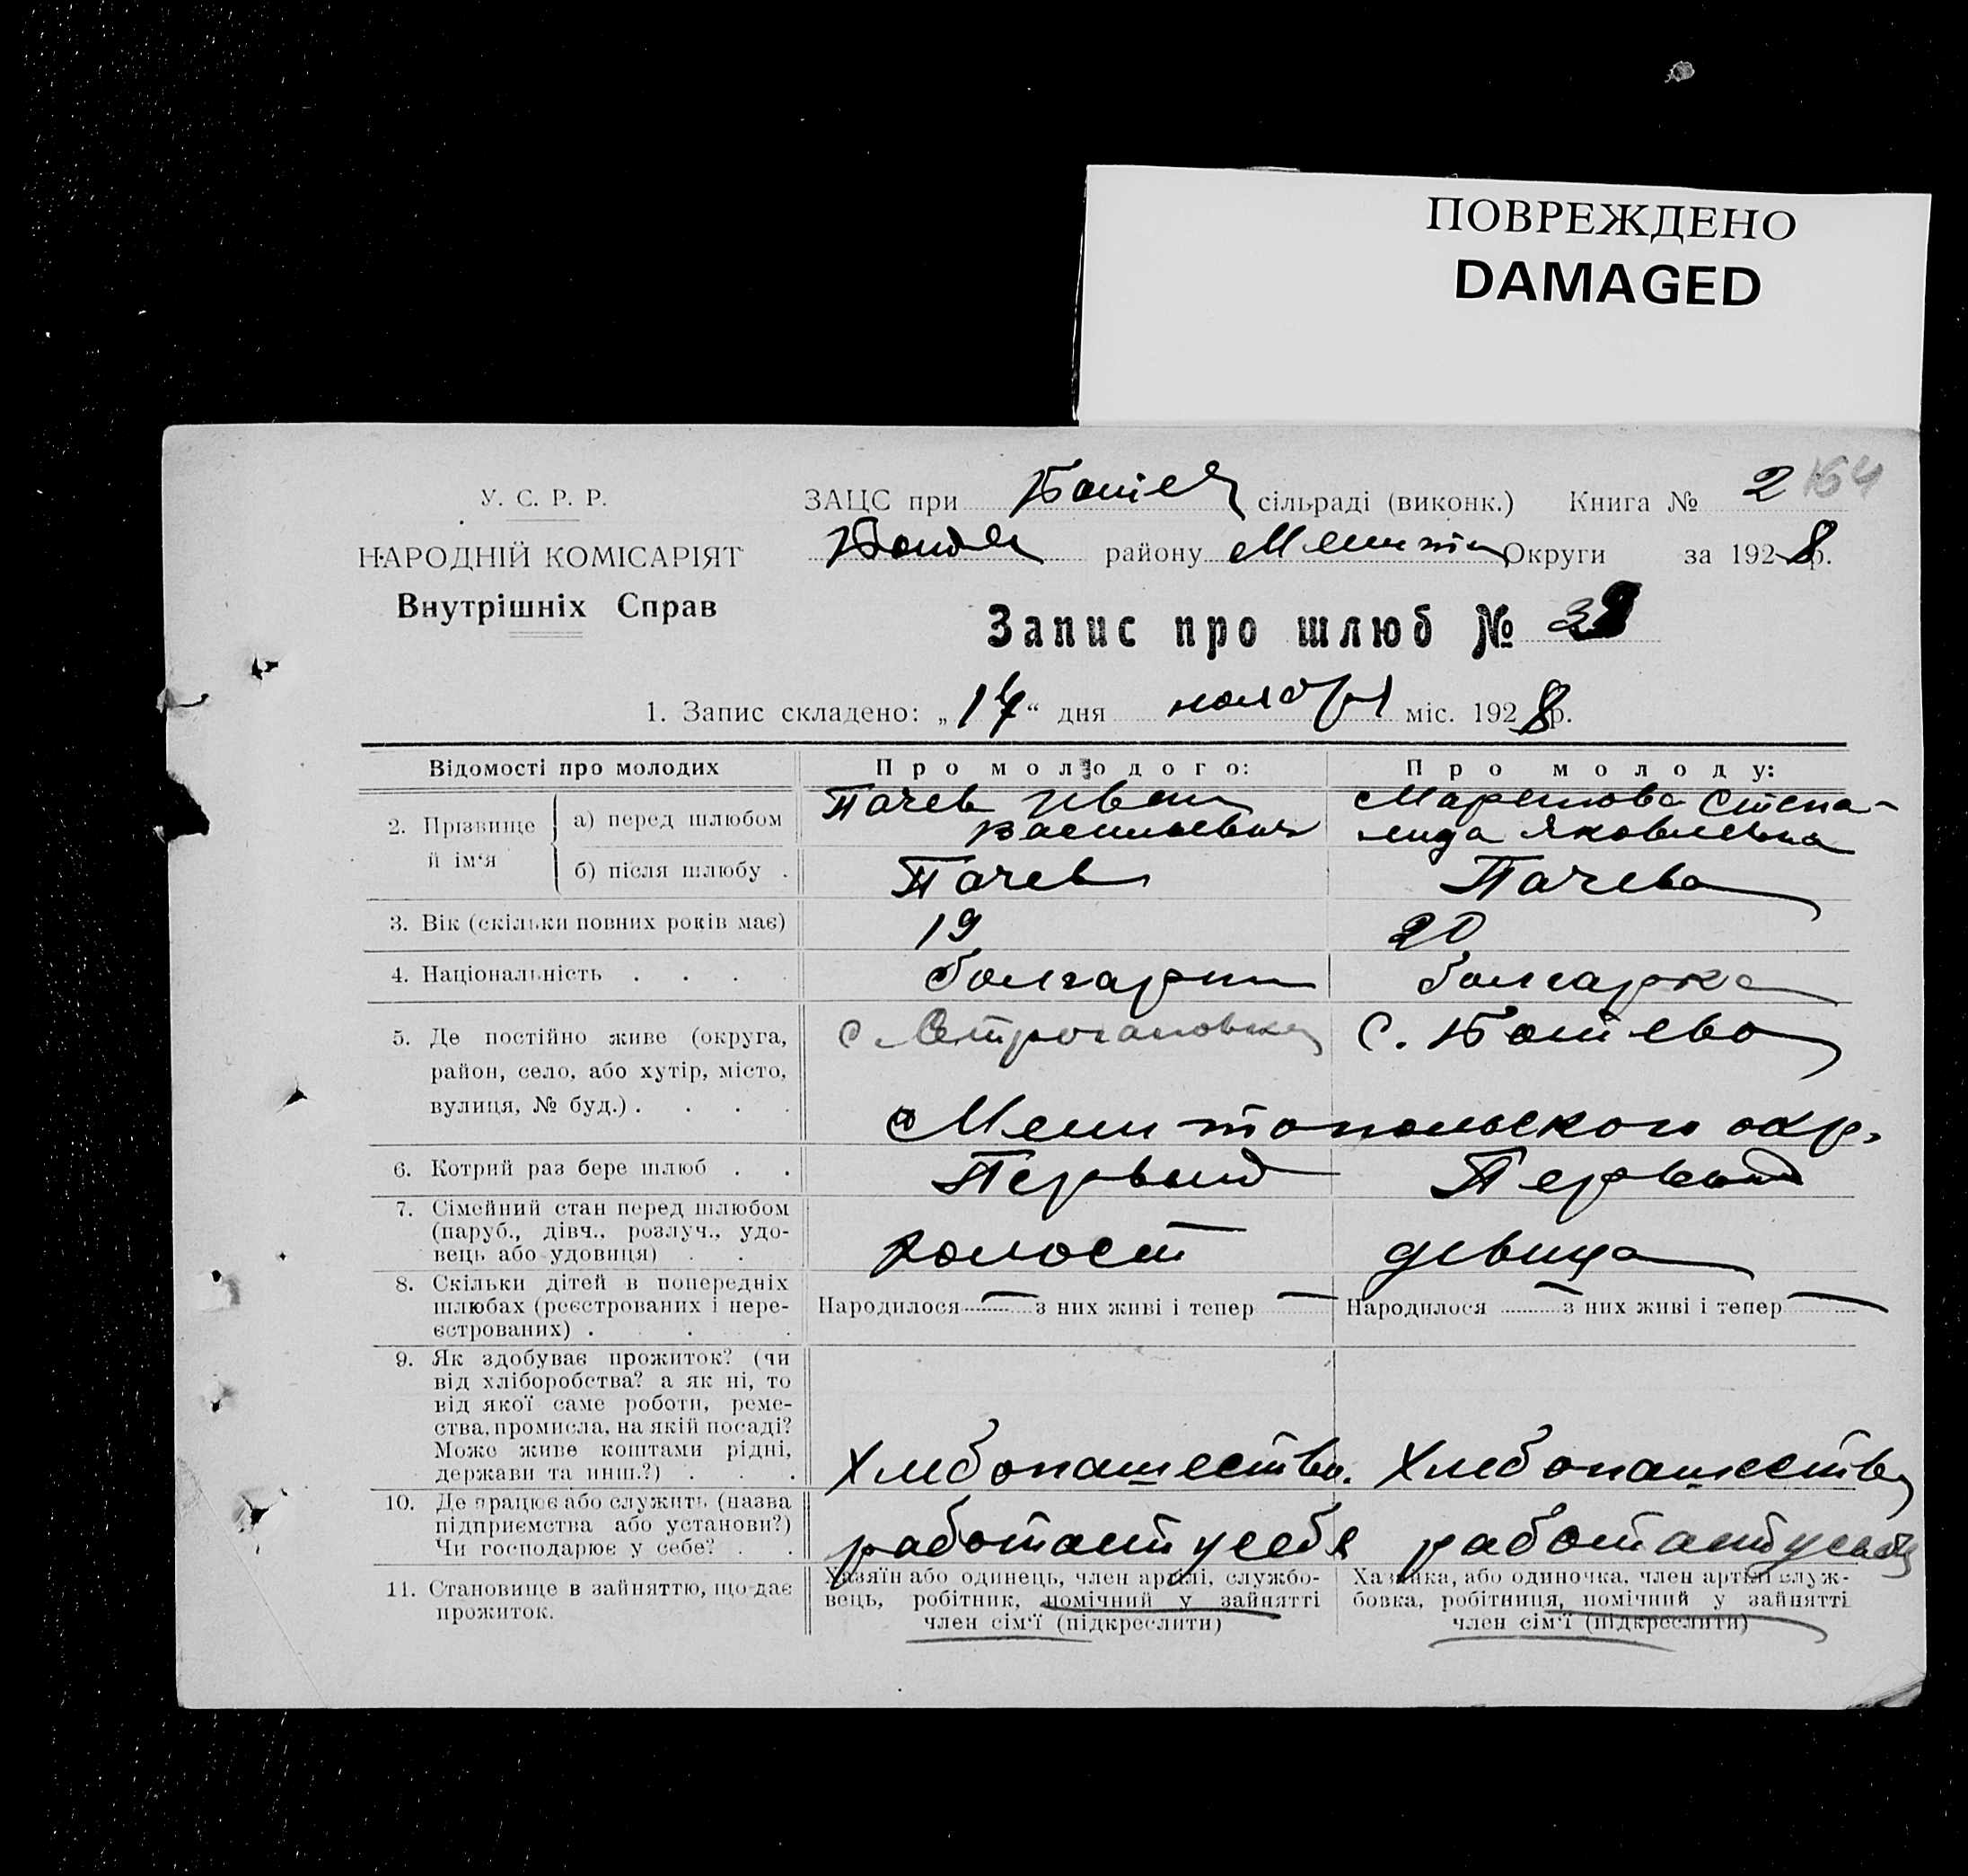 ПОВРЕЖДЕНО
DAMAGED
У. С. Р. Р.
НАРОДНІЙ КОМІСАРІЯТ
Внутрішніх Справ
ЗАЦС при Ботіев сільраді (виконк.) Книга № 2 164
району Мелит Округи за 1928 р.
Запис про шлюб №
1. Запис складено: „17“ дня ноября міс. 1928 р.
Відомості про молодих Про молодого: Про молоду:
2. Прізвище й ім‘я
а) перед шлюбом Пачев Иван Васильевич Маринова Степанида Яковлевна
б) після шлюбу . Пачев Пачева
3. Вік (скільки повних років має) 19 20
4. Національність . . . . болгарин болгарка
5. Де постійно живе (округа, с. Строгановка с. Ботіево
район, село, або хутір, місто,
вулиця, № буд.) . . . . Мелитопольского окр.
6. Котрий раз бере шлюб . . Первый Первый
7. Сімейний стан перед шлюбом
(паруб., дівч., розлуч., удо-
вець або удовиця) . . холост девица
8. Скільки дітей в попередніх
шлюбах (реєстрованих і нере-
єстрованих) . . . Народилося — з них живі і тепер — Народилося — з них живі і тепер —
9. Як здобуває прожиток? (чи
від хліборобства? а як ні, то
від якої саме роботи, реме-
ства, промисла, на якій посаді?
Може живе коштами рідні,
держави та инш.?) . . . Хлебопашество. Хлебопашество
10. Де працює або служить (назва
підприємства або установи?)
Чи господарює у себе? . . работает у себя работает у себя
11. Становище в зайняттю, що дає
прожиток.
Хазяїн або одинець, член артілі, службо-
вець, робітник, помічний у зайнятті
член сім‘ї (підкреслити)
Хазяйка, або одиночка, член артілі служ-
бовка, робітниця, помічний у зайнятті
член сім‘ї (підкреслити)